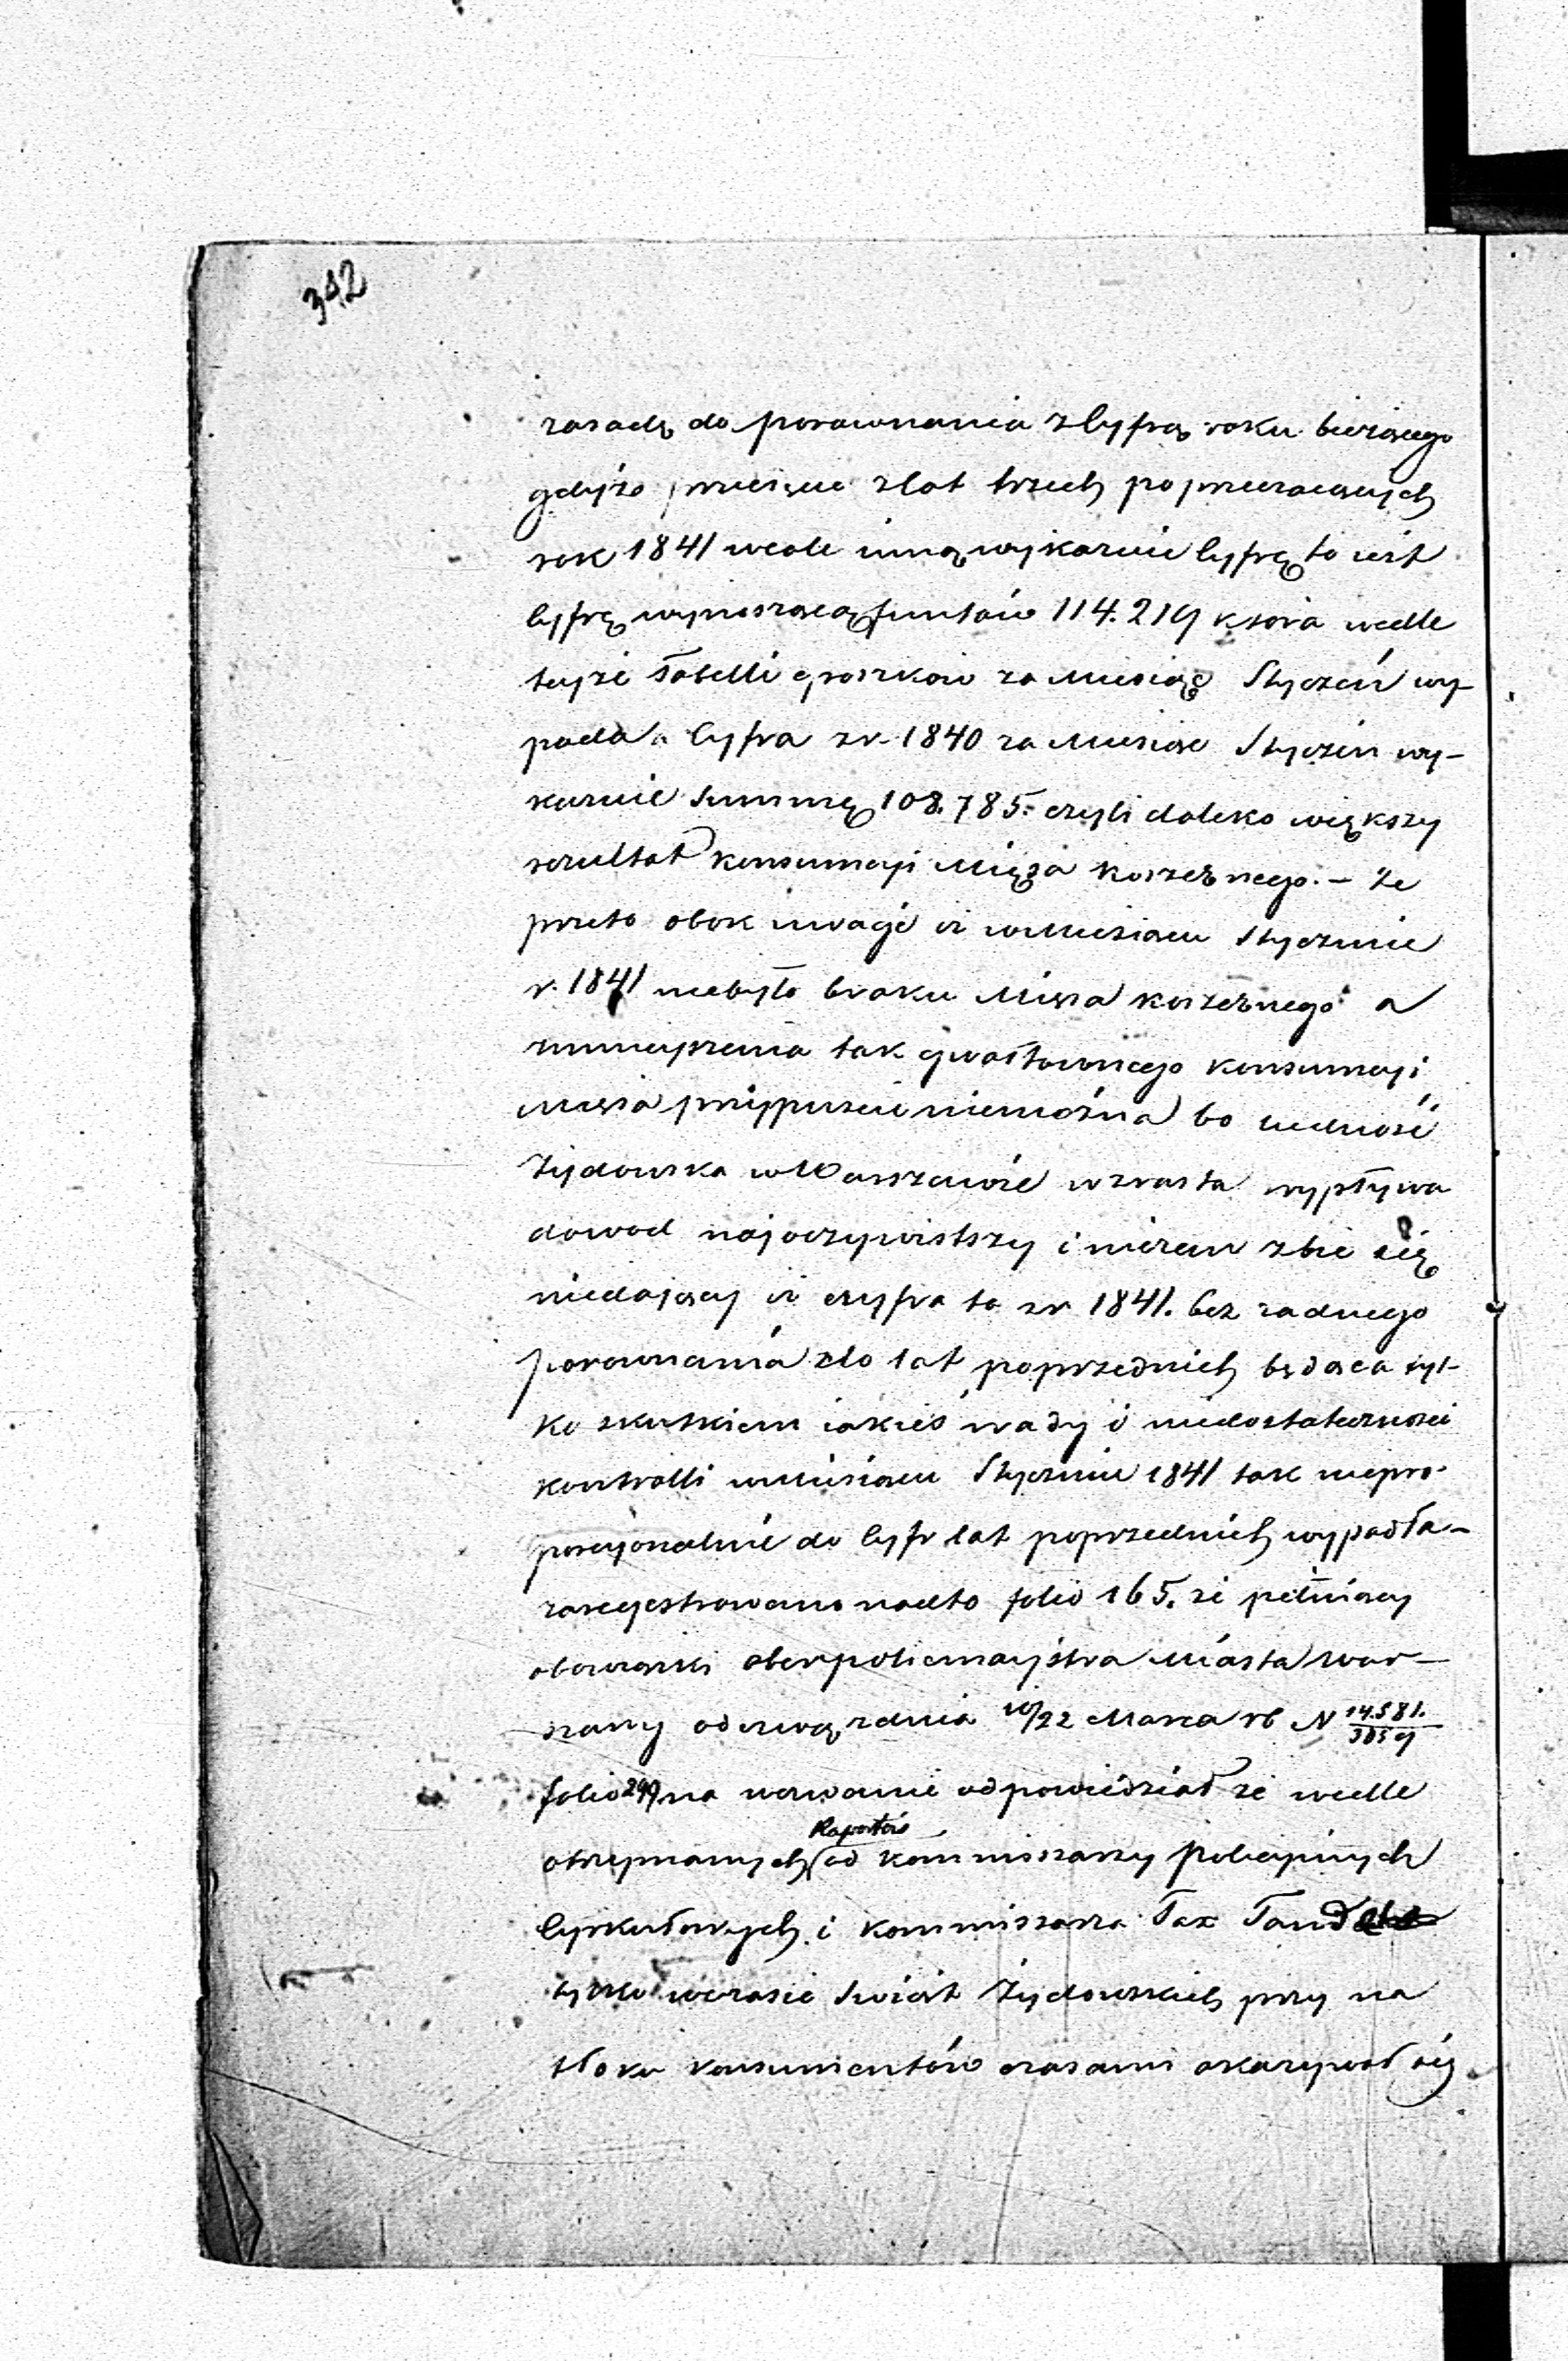 342
zasadę do porównania z Cyfrą roku bieżącego
gdyż przecięcie z lat trzech poprzedzających
rok 1841 wcale inną wykazuie Cyfrę to iest
Cyfrę wynoszącą funtów 114.219 która wedle
teyże Tabelli groszków za Miesiąc Styczeń wy-
pada a Cyfra z r. 1840 za Miesiąc Styczeń wy-
kazuie Summę 108.785. czyli daleko większy
rezultat konsumcyi Mięsa koszernego. – że
przeto obok uwagi iż w Miesiącu Styczniu
r. 1841 niebyło braku Mięsa koszernego a
zmnieyszenia tak gwałtownego konsumcyi
Mięsa przypuścić niemożna bo ludność
Żydowska w Warszawie wzrasta wypływa
dowod najoczywistszy i niczem zbić się
niedający iż cyfra ta z r 1841. bez żadnego
porownania do lat poprzednich będąca tyl-
ko skutkiem iakieś wady i niedostateczności
kontrolli w Miesiącu Styczniu 1841 tak niepro-
porcyonalnie do Cyfr lat poprzednich wypadła –
zaregestrowano nadto folio 165. że pełniący
obowiązki oberpolicmaystra Miasta War-
szawy odezwą z dnia 10/22 Marca rb N 14.581./3059
folio 249 na wezwanie odpowiedział że wedle
otrzymanych Raportów od kommissarzy Policyinych
Cyrkułowych i kommissarza Tax Tand
tylko w czasie Swiąt Żydowskich przy na
tłoku konsumentów czasami okazywał się